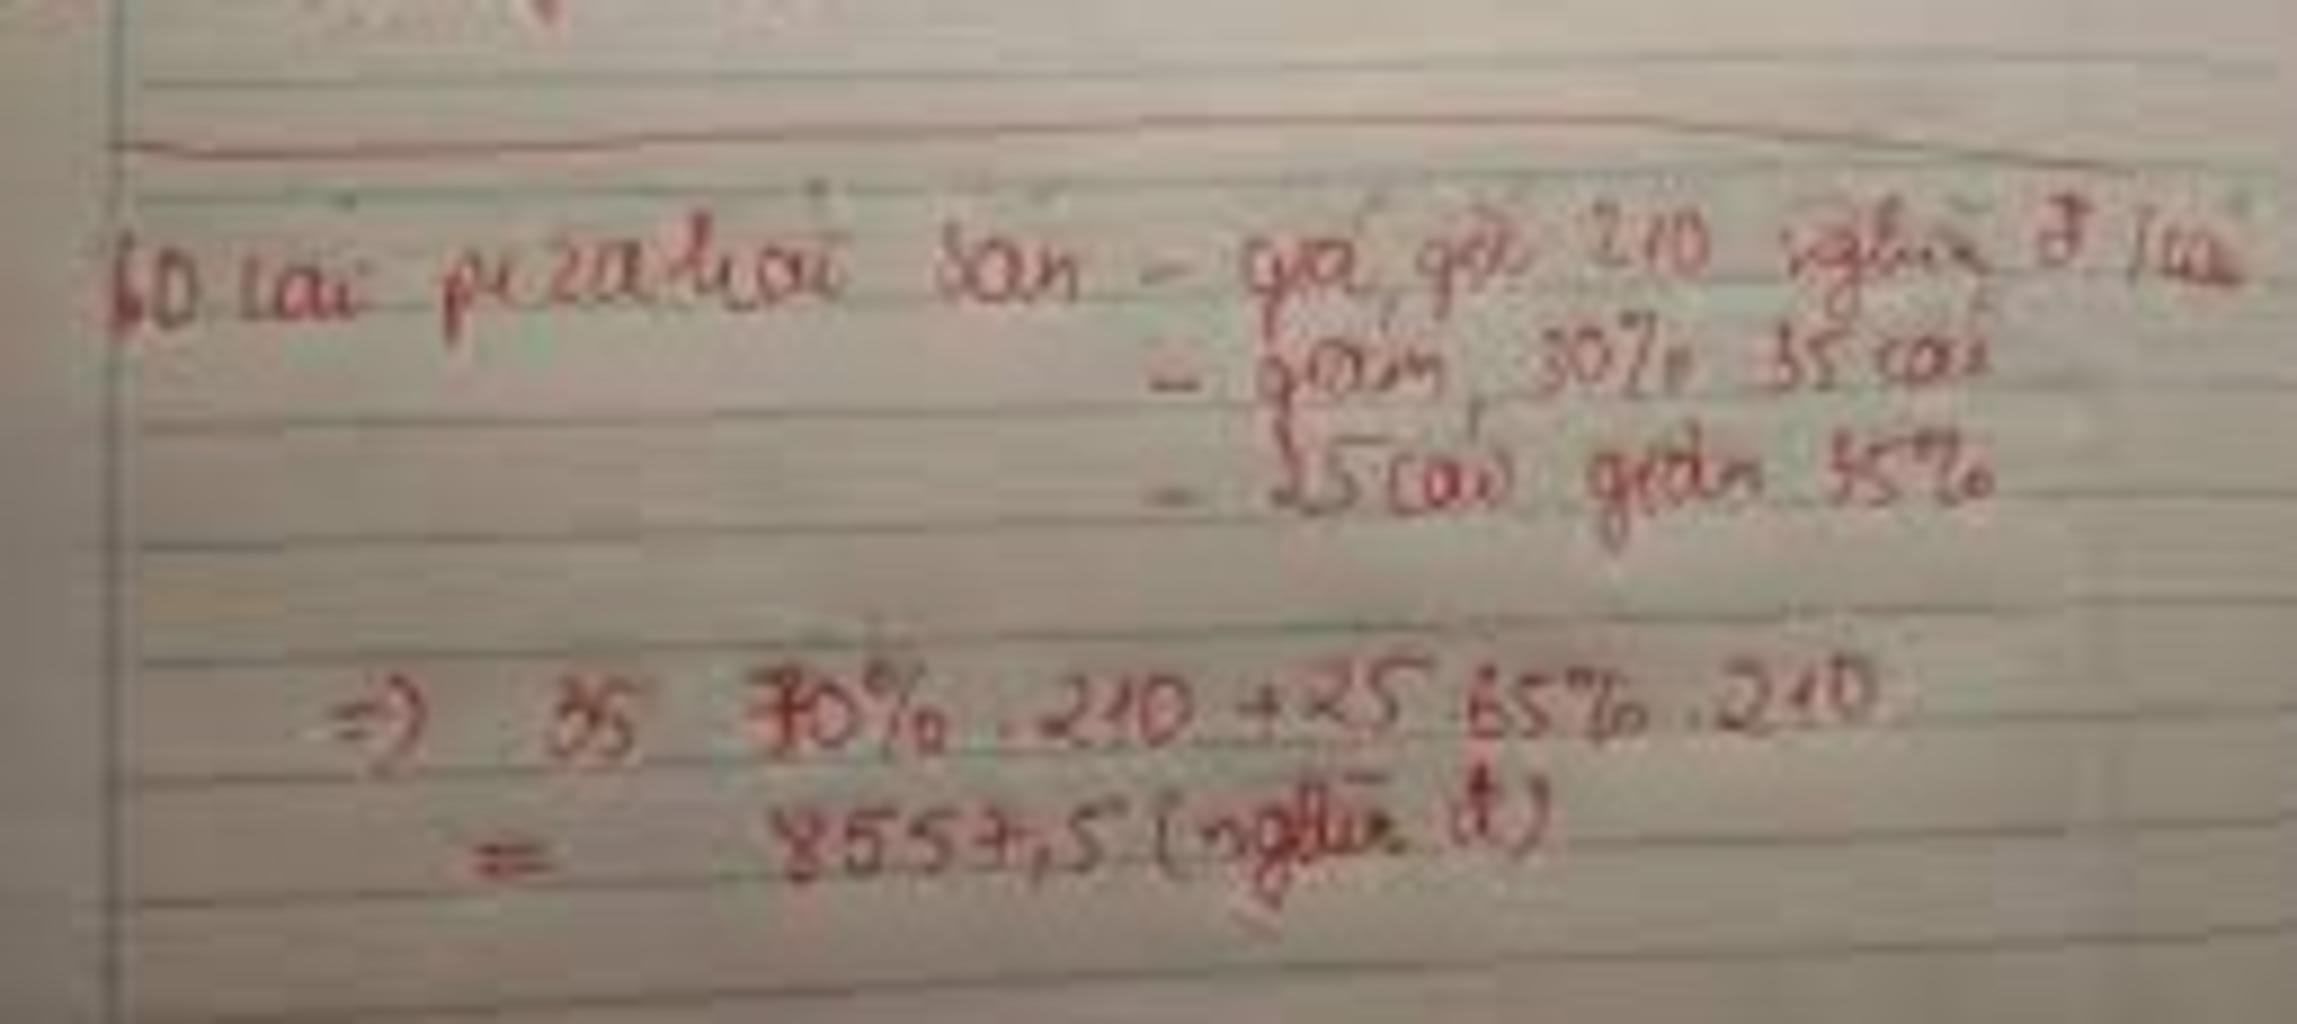 60 cái pizza hải sản - giá gốc 210 nghìn đ / cái
- giảm 30% 35 cái
- 25 cái giảm 35%
=> 35 70% . 210 + 25 65% . 210
= 8557,5 (nghìn đ)